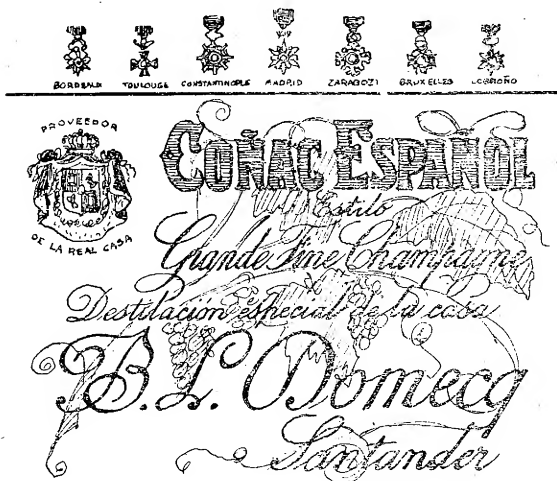 BORDEAUX TOULOUSE CONSTANTINOPLE MADRID ZARAGOZI BRUXELLES LOGROÑO
PROVEEDOR
DE LA REAL CASA
COÑAC ESPAÑOL
Estilo
Grande Fine Champagne
Destilacion especial de la casa
B. L. Domecq
Santander